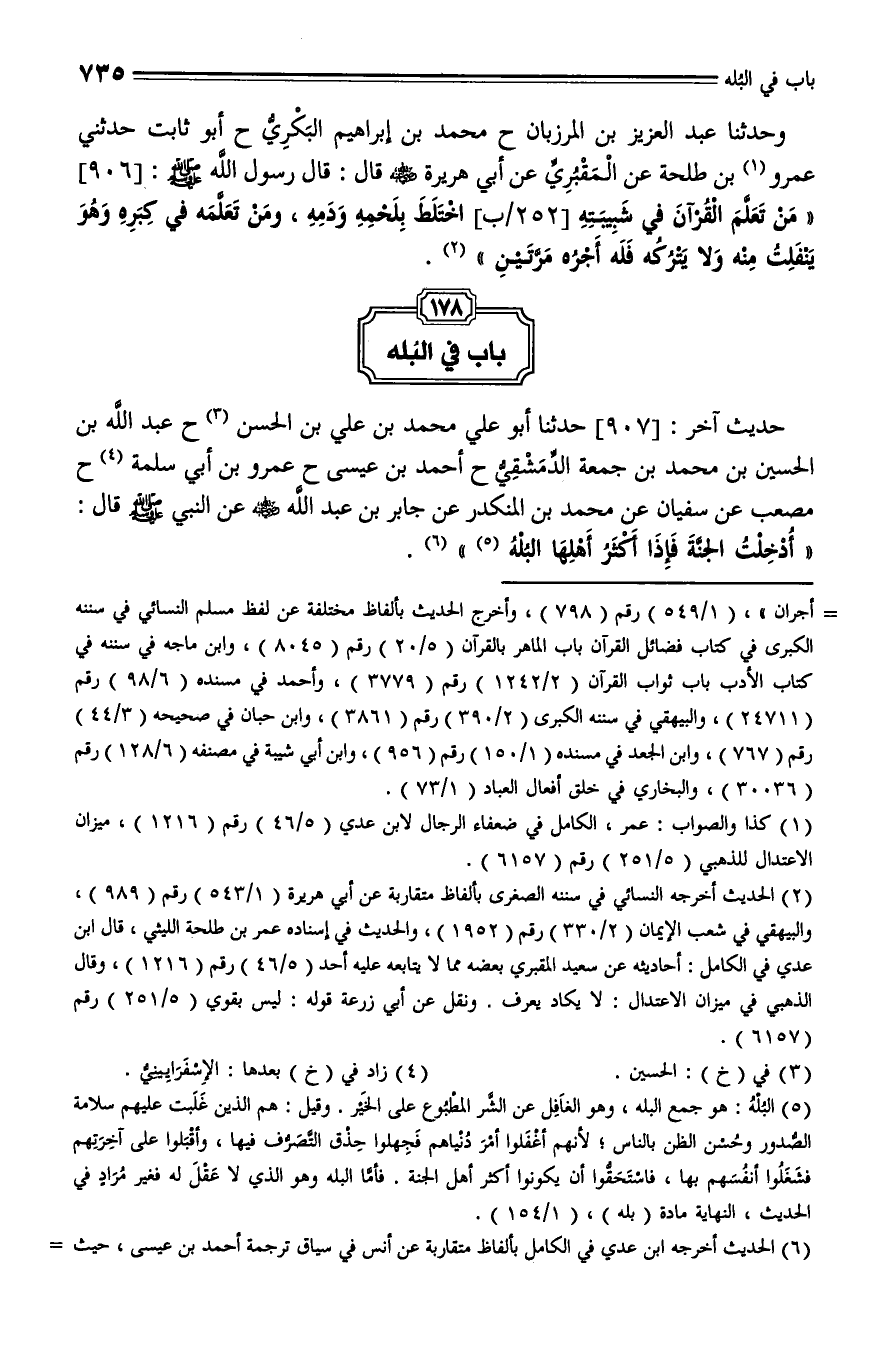 باب في البُله ٧٣٥
وحدثنا عبد العزيز بن المرزبان ح محمد بن إبراهيم البَكْرِيُّ ح أبو ثابت حدثني
عمرو (١) بن طلحة عن الْـمَقْبُرِيِّ عن أبي هريرة ﵁ قال : قال رسول اللَّه ﷺ : [٩٠٦]
« مَنْ تَعَلَّمَ الْقُرْآنَ في شَبِيبَتِهِ [٢٥٢/ب] اخْتَلَطَ بِلَحْمِهِ وَدَمِهِ ، ومَنْ تَعَلَّمَه في كِبَرِهِ وَهُوَ
يَنْفَلِتُ مِنْه وَلا يَتْرُكُه فَلَه أَجْرُه مَرَّتَـيْـنِ » (٢) .
١٧٨
باب في البُله
حديث آخر : [٩٠٧] حدثنا أبو علي محمد بن علي بن الحسن (٣) ح عبد اللَّه بن
الحسين بن محمد بن جمعة الدِّمَشْقِيُّ ح أحمد بن عيسى ح عمرو بن أبي سلمة (٤) ح
مصعب عن سفيان عن محمد بن المنكدر عن جابر بن عبد اللَّه ﵁ عن النبي ﷺ قال :
« أُدْخِلْتُ الجنَّةَ فَإِذَا أَكْثَرُ أَهْلِهَا البُلْهُ (٥) » (٦) .
= أجران » ، ( ٥٤٩/١ ) رقم ( ٧٩٨ ) ، وأخرج الحديث بألفاظ مختلفة عن لفظ مسلم النسائي في سننه
الكبرى في كتاب فضائل القرآن باب الماهر بالقرآن ( ٢٠/٥ ) رقم ( ٨٠٤٥ ) ، وابن ماجه في سننه في
كتاب الأدب باب ثواب القرآن ( ١٢٤٢/٢ ) رقم ( ٣٧٧٩ ) ، وأحمد في مسنده ( ٩٨/٦ ) رقم
( ٢٤٧١١ ) ، والبيهقي في سننه الكبرى ( ٣٩٠/٢ ) رقم ( ٣٨٦١ ) ، وابن حبان في صحيحه ( ٤٤/٣ )
رقم ( ٧٦٧ ) ، وابن الجعد في مسنده ( ١٥٠/١ ) رقم ( ٩٥٦ ) ، وابن أبي شيبة في مصنفه ( ١٢٨/٦ ) رقم
( ٣٠٠٣٦ ) ، والبخاري في خلق أفعال العباد ( ٧٣/١ ) .
(١) كذا والصواب : عمر ، الكامل في ضعفاء الرجال لابن عدي ( ٤٦/٥ ) رقم ( ١٢١٦ ) ، ميزان
الاعتدال للذهبي ( ٢٥١/٥ ) رقم ( ٦١٥٧ ) .
(٢) الحديث أخرجه النسائي في سننه الصغرى بألفاظ متقاربة عن أبي هريرة ( ٥٤٣/١ ) رقم ( ٩٨٩ ) ،
والبيهقي في شعب الإيمان ( ٣٣٠/٢ ) رقم ( ١٩٥٢ ) ، والحديث في إسناده عمر بن طلحة الليثي ، قال ابن
عدي في الكامل : أحاديثه عن سعيد المقبري بعضه مما لا يتابعه عليه أحد ( ٤٦/٥ ) رقم ( ١٢١٦ ) ، وقال
الذهبي في ميزان الاعتدال : لا يكاد يعرف . ونقل عن أبي زرعة قوله : ليس بقوي ( ٢٥١/٥ ) رقم
( ٦١٥٧ ) .
(٣) في ( خ ) : الحسين . (٤) زاد في ( خ ) بعدها : الإِسْفَرَايِينِيُّ .
(٥) البُلْهُ : هو جمع البله ، وهو الغَافِل عن الشَّر المطْبُوع على الخَيْر . وقيل : هم الذين غَلَبت عليهم سلامة
الصُّدور وحُسْن الظن بالناس ؛ لأنهم أغْفَلوا أمْرَ دُنْياهم فَجهلوا حِذْق التَّصَرُّف فيها ، وأقْبَلوا على آخِرَتِهم
فشَغَلُوا أنفُسَهم بها ، فاسْتَحَقُّوا أن يكونوا أكثر أهل الجنة . فأمَّا البله وهو الذي لا عَقْلَ له فغير مُرَادٍ في
الحديث ، النهاية مادة ( بله ) ، ( ١٥٤/١ ) .
(٦) الحديث أخرجه ابن عدي في الكامل بألفاظ متقاربة عن أنس في سياق ترجمة أحمد بن عيسى ، حيث =